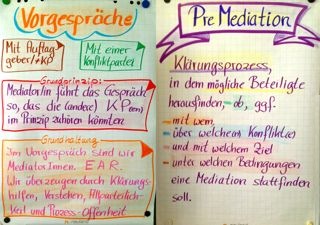 Vorgespräche
Mit Auftrag-
geber/KP
Mit einer
Konfliktpartei
Grundprinzip:
MediatorIn führt das Gespräch
so, das die (andere) KP(en)
im Prinzip zuhören könnten
Grundhaltung:
Im Vorgespräch sind wir
MediatorInnen. E.A.R.
Wir überzeugen durch Klärungs-
hilfen, Verstehen, Allparteilich-
keit und Prozess-Offenheit
Pre Mediation
Klärungsprozess,
in dem mögliche Beteiligte
herausfinden, ob, ggf.
- mit wem,
- über welche(n) Konflikt(e)
- und mit welchem Ziel
- unter welchen Bedingungen
eine Mediation stattfinden
soll.